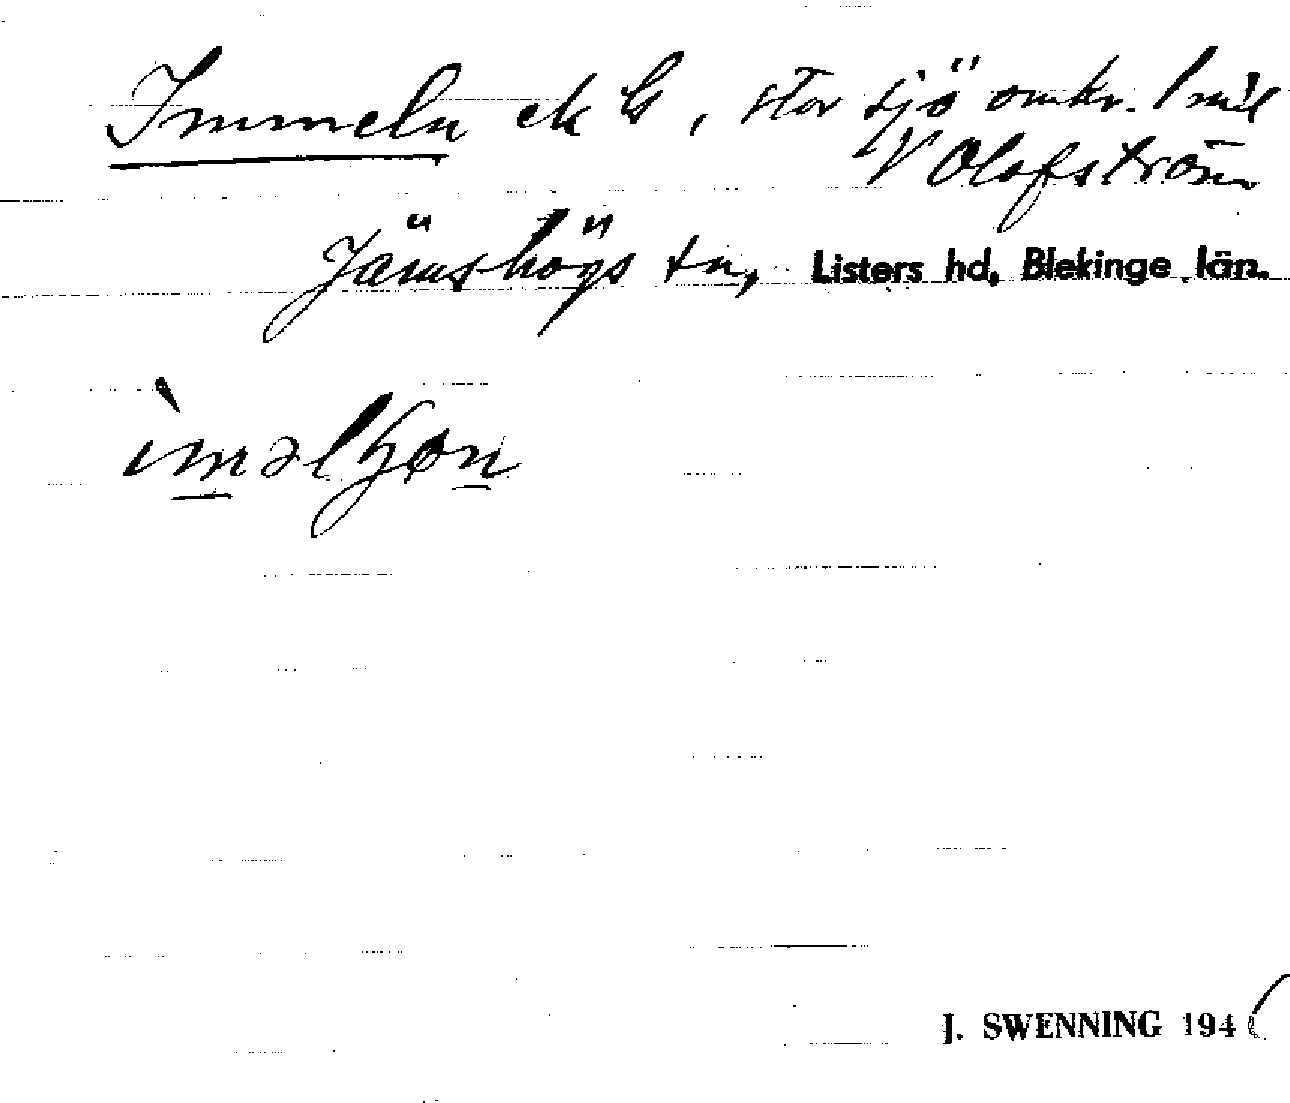 Immeln ek G, stor sjö omkr. 1 mil
V Olofström
Jämshögs sn, Listers hd, Blekinge län.
J. SWENNING 194